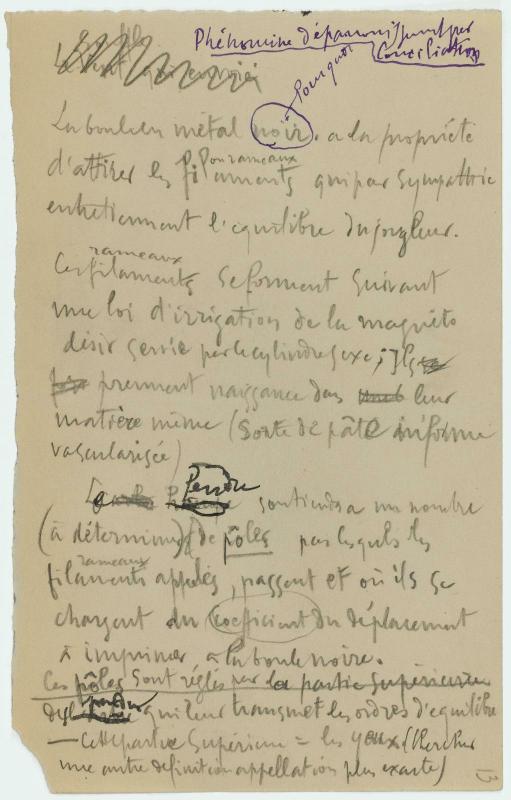 Phénomène d'épanouissement par
Conciliation
Pourquoi
La boule en métal noir. a la propriété
ou rameaux
d'attirer les filaments qui par sympathie
entretiennent l'équilibre du jongleur.
rameaux
Ces filaments se forment suivant
une loi d'irrigation de la magnéto
désir servie par le cylindre sexe; Ils
prennent naissance dans leur
matière même (Sorte de pâte informe
vascularisée)
soutiendra un nombre
(à déterminer) de pôles par lesquels les
rameaux
filaments appelés, passent et où ils se
chargent du coefficient du déplacement
à imprimer à la boule noire.
Ces pôles sont réglés par la partie supérieure
qui leur transmet les ordres d'équilibre
— Cette partie supérieure = les yeux (chercher
une autre definition appellation plus exacte)